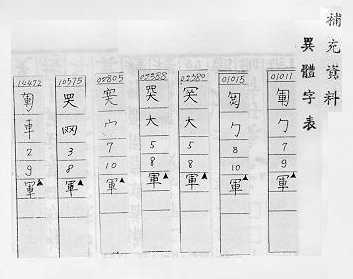 補充資料
異體字表
01011
勹
7
9
軍
01015
勹
8
10
軍
02380
大
5
8
軍
02388
大
5
8
軍
02805
宀
7
10
軍
10575
网
3
8
軍
14472
車
2
9
軍